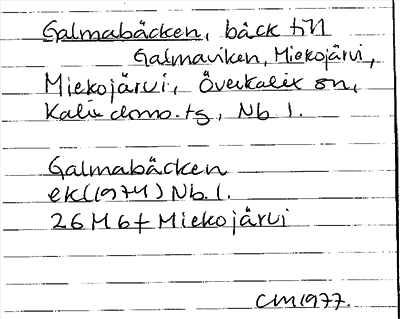 Galmabäcken, bäck till
Galmaviken, Miekojärvi,
Miekojärvi, Överkalix sn,
Kalix doms.tg, Nb l.
Galmabäcken
ek (1974) Nb. l.
26 M 6f Miekojärvi
CM 1977.